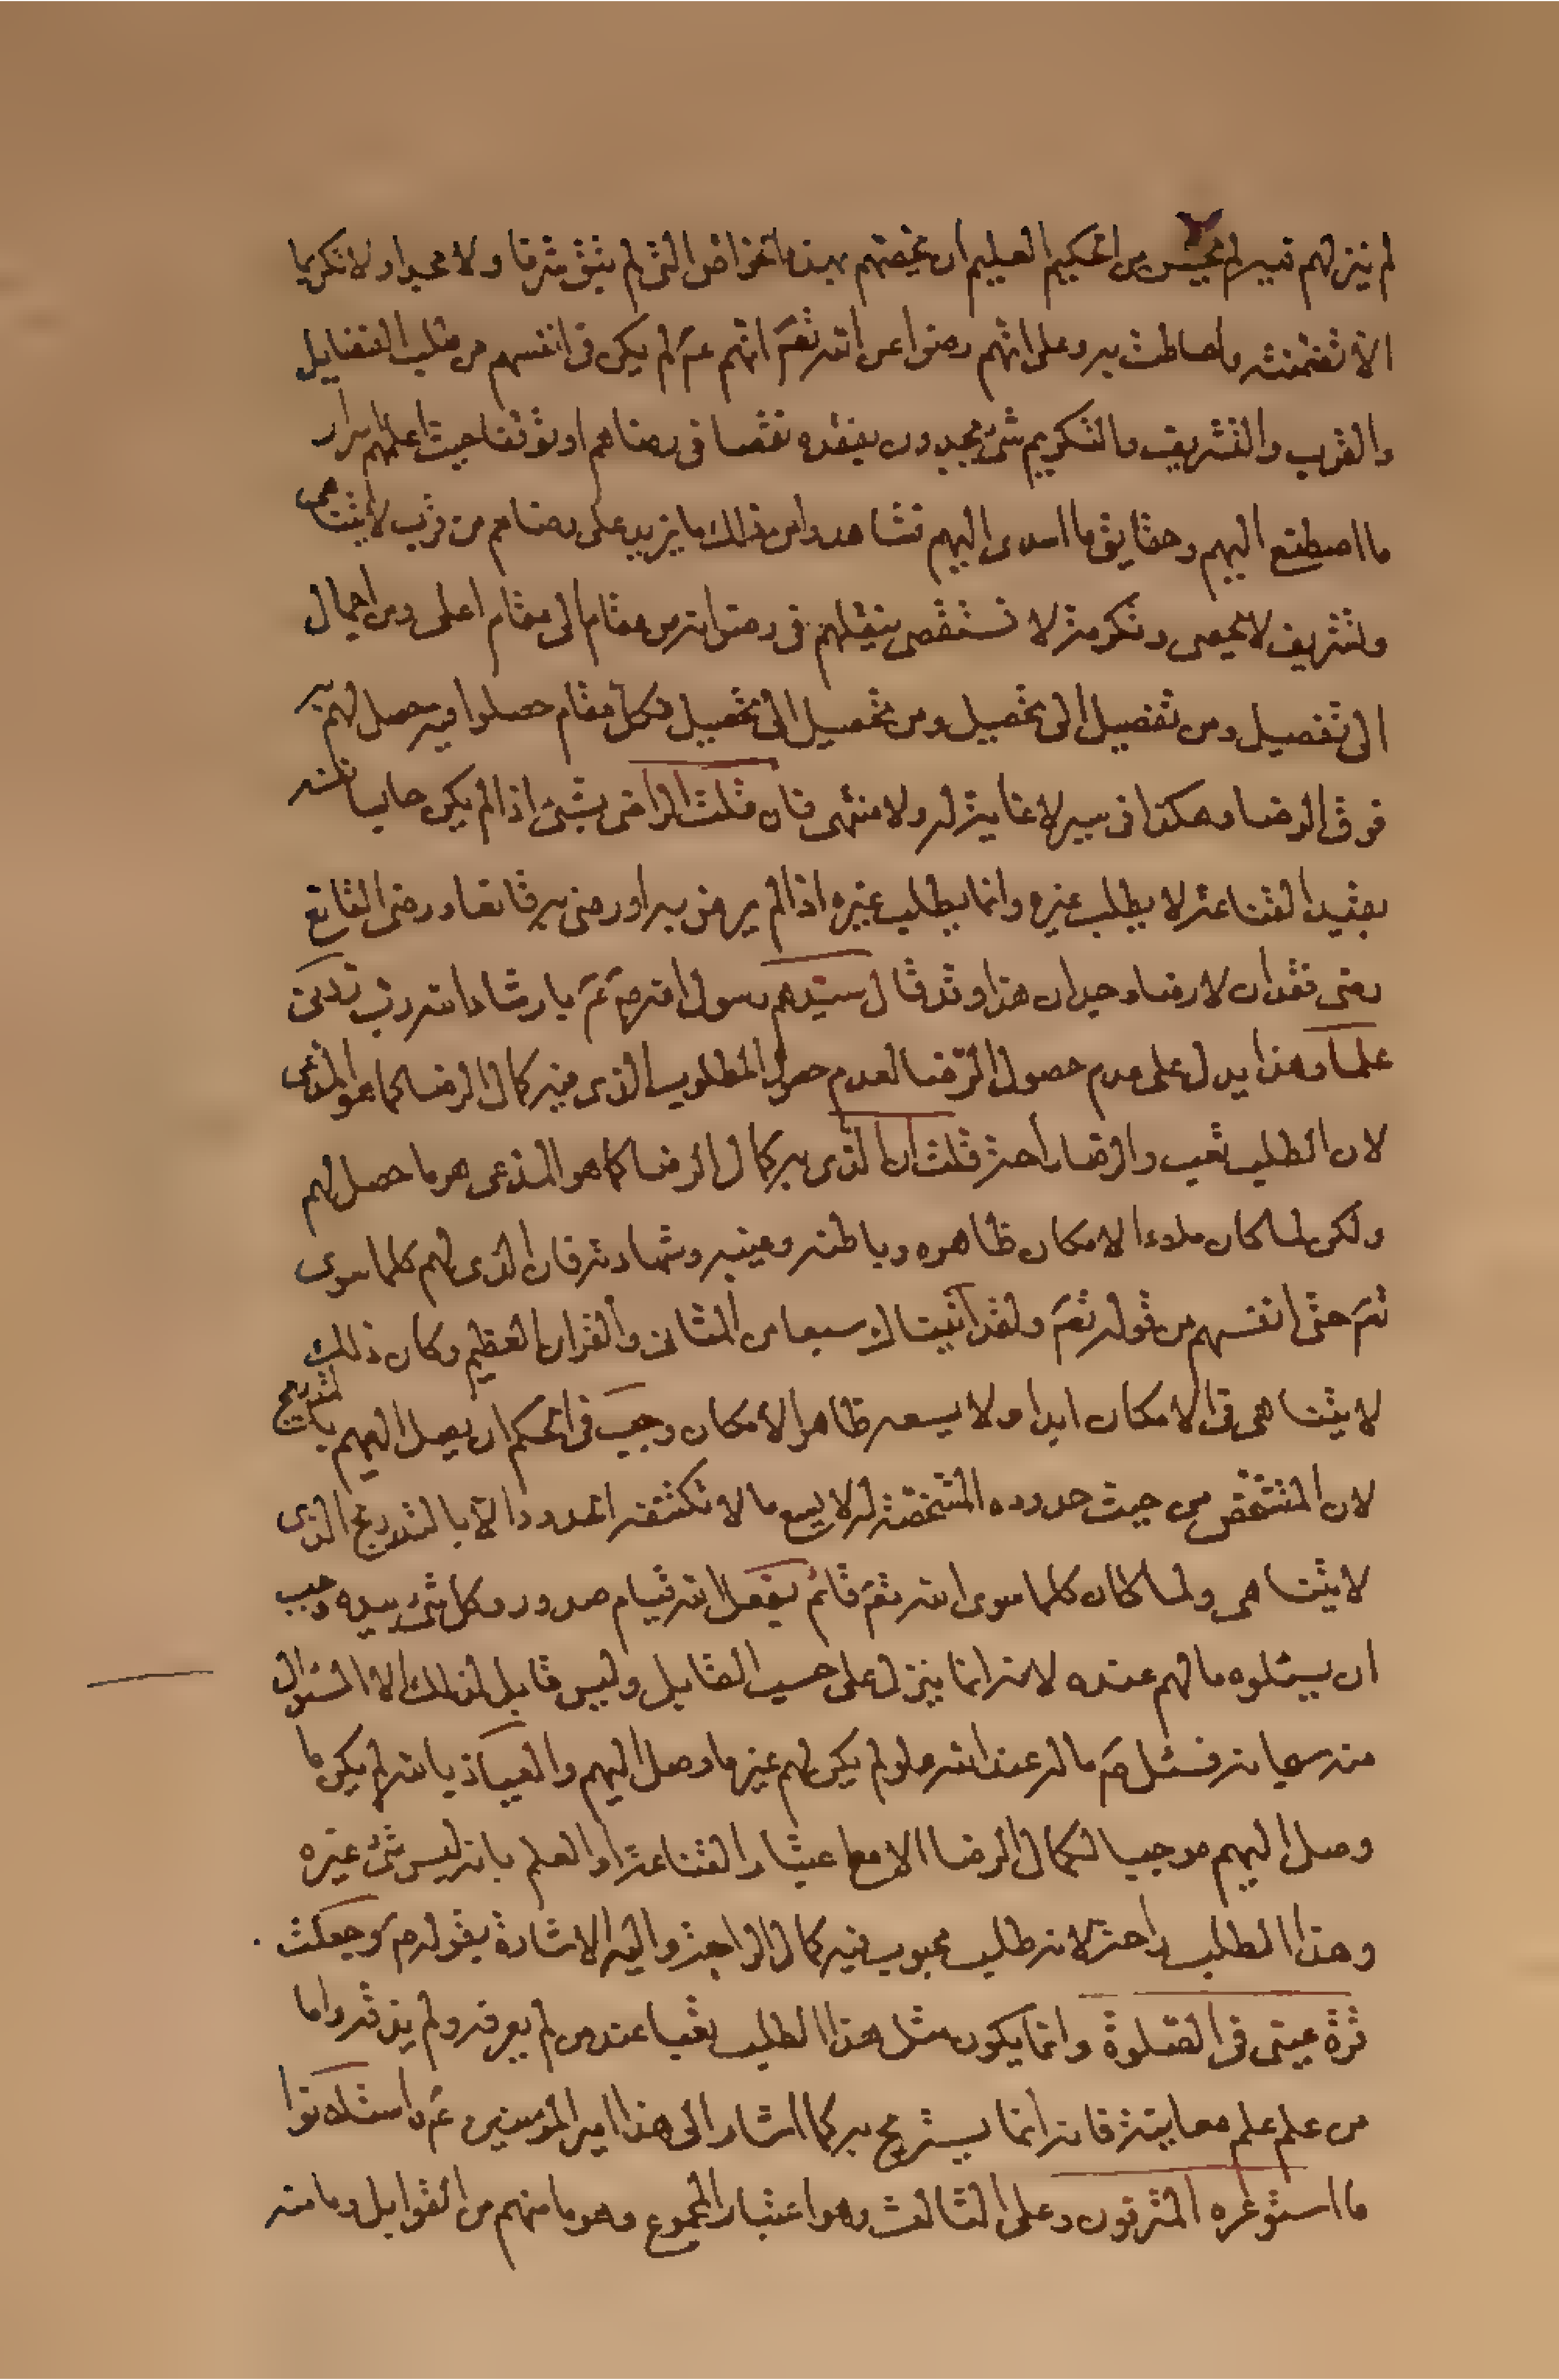 لم ينزلهم فيه لم يحسن من الحكيم العليم ان يخصهم بهذه الخواص التي لم يبق شرفا ولا مجدا ولا تكريما
الا تضمنته واحاطت به وعلى انهم رضوا عن الله تعم انهم عم لم يكن في انفسهم من طلب الفضايل
والقرب والتشريف والتكريم شئ يجدون بفقده نقصا في رضاهم او توقفا حيث اعلمهم اسرار
ما اصطنع اليهم وحقايق ما اسدى اليهم تشاهدوا من ذلك ما يزيد على رضاهم من قرب لا يتناهى
وتشريف لا يحصى وتكرمة لا تستقصى بنقلهم في رضوانه من مقام الى مقام اعلى ومن اجمال
الى تفصيل ومن تفصيل الى تحصيل ومن تحصيل الى تحصيل فكل مقام حصلوا فيه حصل لهم به
فوق الرضا وهكذا في سير لا غاية له ولا منتهى فان قلت الراضى بشئ اذا لم يكن حابسا نفسه
بقيد القناعة لا يطلب غيره وانما يطلب غيره اذا لم يرض به او رضى به قانعا ورضى القانع
رضى فقدان لا رضاء وجدان هذا وقد قال سيدهم رسول الله صم بارشاد الله رب زدنى
علما وهذا يدل على عدم حصول الرضا لعدم حصول المطلوب الذى فيه كمال الرضا كما هو المدعى
لان الطلب تعب والرضا راحة قلت ان الذى به كمال الرضا كما هو المدعى هو ما حصل لهم
ولكن لما كان ملاء الامكان ظاهره وباطنه وغيبه وشهادته فان الذى لهم كلما سوى
الله حتى انفسهم من قوله تعم ولقد آتيناك سبعا من المثانى والقران العظيم وكان ذلك
لا يتناهى في الامكان ابدا ولا يسعه ظاهر الامكان وجب في الحكم ان يصل اليهم بالتدريج
لان المتشخص من حيث حدوده المشخصة له لا يسع ما لا تكتنفه الحدود الا بالتدريج الذى
لا يتناهى ولما كان كلما سوى الله تعم قائم بفعل الله قيام صدور وكل شئ بيده وجب
ان يسئلوه ما لهم عنده لانه انما ينزل على حسب القابل وليس قابل لذلك الا السؤال
منه سبحانه فسئل صم ما له عند الله ولو لم يكن لهم غير ما وصل اليهم والعياذ بالله لم يكن ما
وصل اليهم موجبا لكمال الرضا الا مع اعتبار القناعة او العلم بانه ليس شئ غيره
وهذا الطلب راحة لانه طلب محبوب فيه كمال الراحة واليه الاشارة بقوله صم وجعلت
قرة عينى في الصلوة وانما يكون مثل هذا الطلب تعبا عند من لم يعرفه ولم يذقه واما
من علم علم معاينة فانه انما يستريح به كما اشار الى هذا امير المؤمنين عم واستلانوا
ما استوعره المترفون وعلى الثالث وهو اعتبار المجموع وهو ما منهم من القوابل وما منه